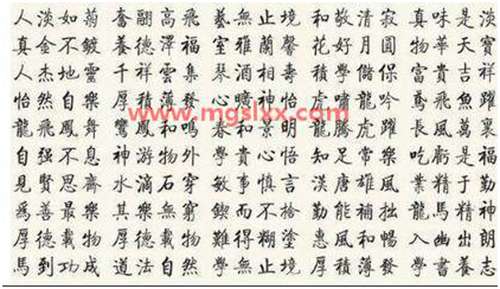 人淡如菊 奮翮高飛 藝無止境 和敬清寂 真味是淡
真金不鍍 養德澤福 室雅蘭馨 花好月圓 物華天寶
人杰地靈 千祥雲集 琴酒相壽 積學儲保 富貴吉祥
怡然自樂 厚積薄發 心曠神怡 虎嘯龍吟 鳶飛魚躍
www.mgslxx.com
龍飛鳳舞 鸞鳳和鳴 春和景明 龍騰虎躍 長風萬裏
自强不息 神游物外 學貴心悟 知足常樂 吃虧是福
見賢思齋 水滴石穿 敏事慎言 漢唐雄風 業精于勤
為善最樂 其樂無窮 鍥而不捨 勤能補拙 龍馬精神
厚德載物 厚德載物 難得糊塗 惠風和暢 入幽出朗
馬到功成 道法自然 學無止境 厚積薄發 學書養志